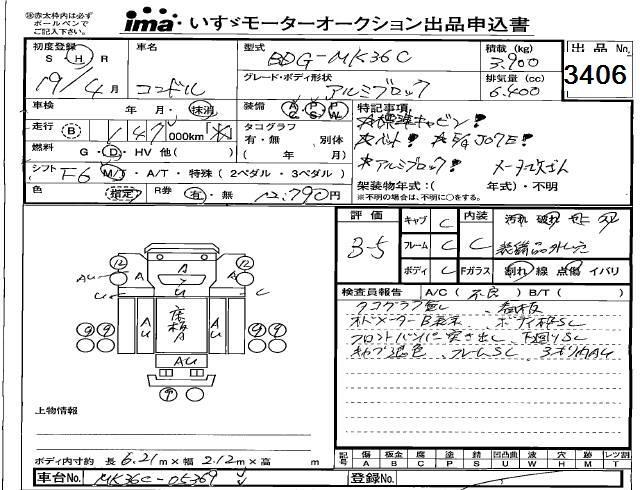 ※赤太枠内は必ず
ボールペンで
ご記入下さい。
ima いすゞモーターオークション出品申込書
初度登録 車名 型式 積載(kg) 出品No.
S H R BDG-MK36C 3,900
19/4月 コンドル グレード・ボディ形状 排気量(cc) 3406
アルミブロック 6,400
車検 年 月・抹消 装備 A/C P/S P/W 特記事項
走行 B 147 000km タコグラフ 有・無 別体 ( 年 月)
☆標準キャビン!
☆ベット! J07E!
☆アルミブロック!
燃料 G・D・HV 他( )
シフト F6 M/T・A/T・特殊(2ペダル・3ペダル)
架装物年式:( 年式)・不明
※不明の場合は、不明に○をする。
色 指定 R券 有・無 12,790円
評価 3-5
キャブ C 内装 C 汚れ 破れ
フレーム C 装備品外し穴
ボディ C Fガラス 割れ 線 点傷 イバリ
検査員報告 A/C(不良) B/T( )
タコグラフ無し、看板
オドメーターB表示、ボディ枠SC
フロントバンパー突き出し、下廻りSC
キャブ退色、フレームSC、
12 A 12
AU U U C
9 9 AU 床板A AU 9 9
AU
9
上物情報
ボディ内寸約 長 6.21m×幅 2.12m×高 m
記号 傷 板金 腐 塗 錆 凹凸曲 液 穴 跡 レツ割
A B C P S U W H M T
車台No. MK36C-05369
登録No.